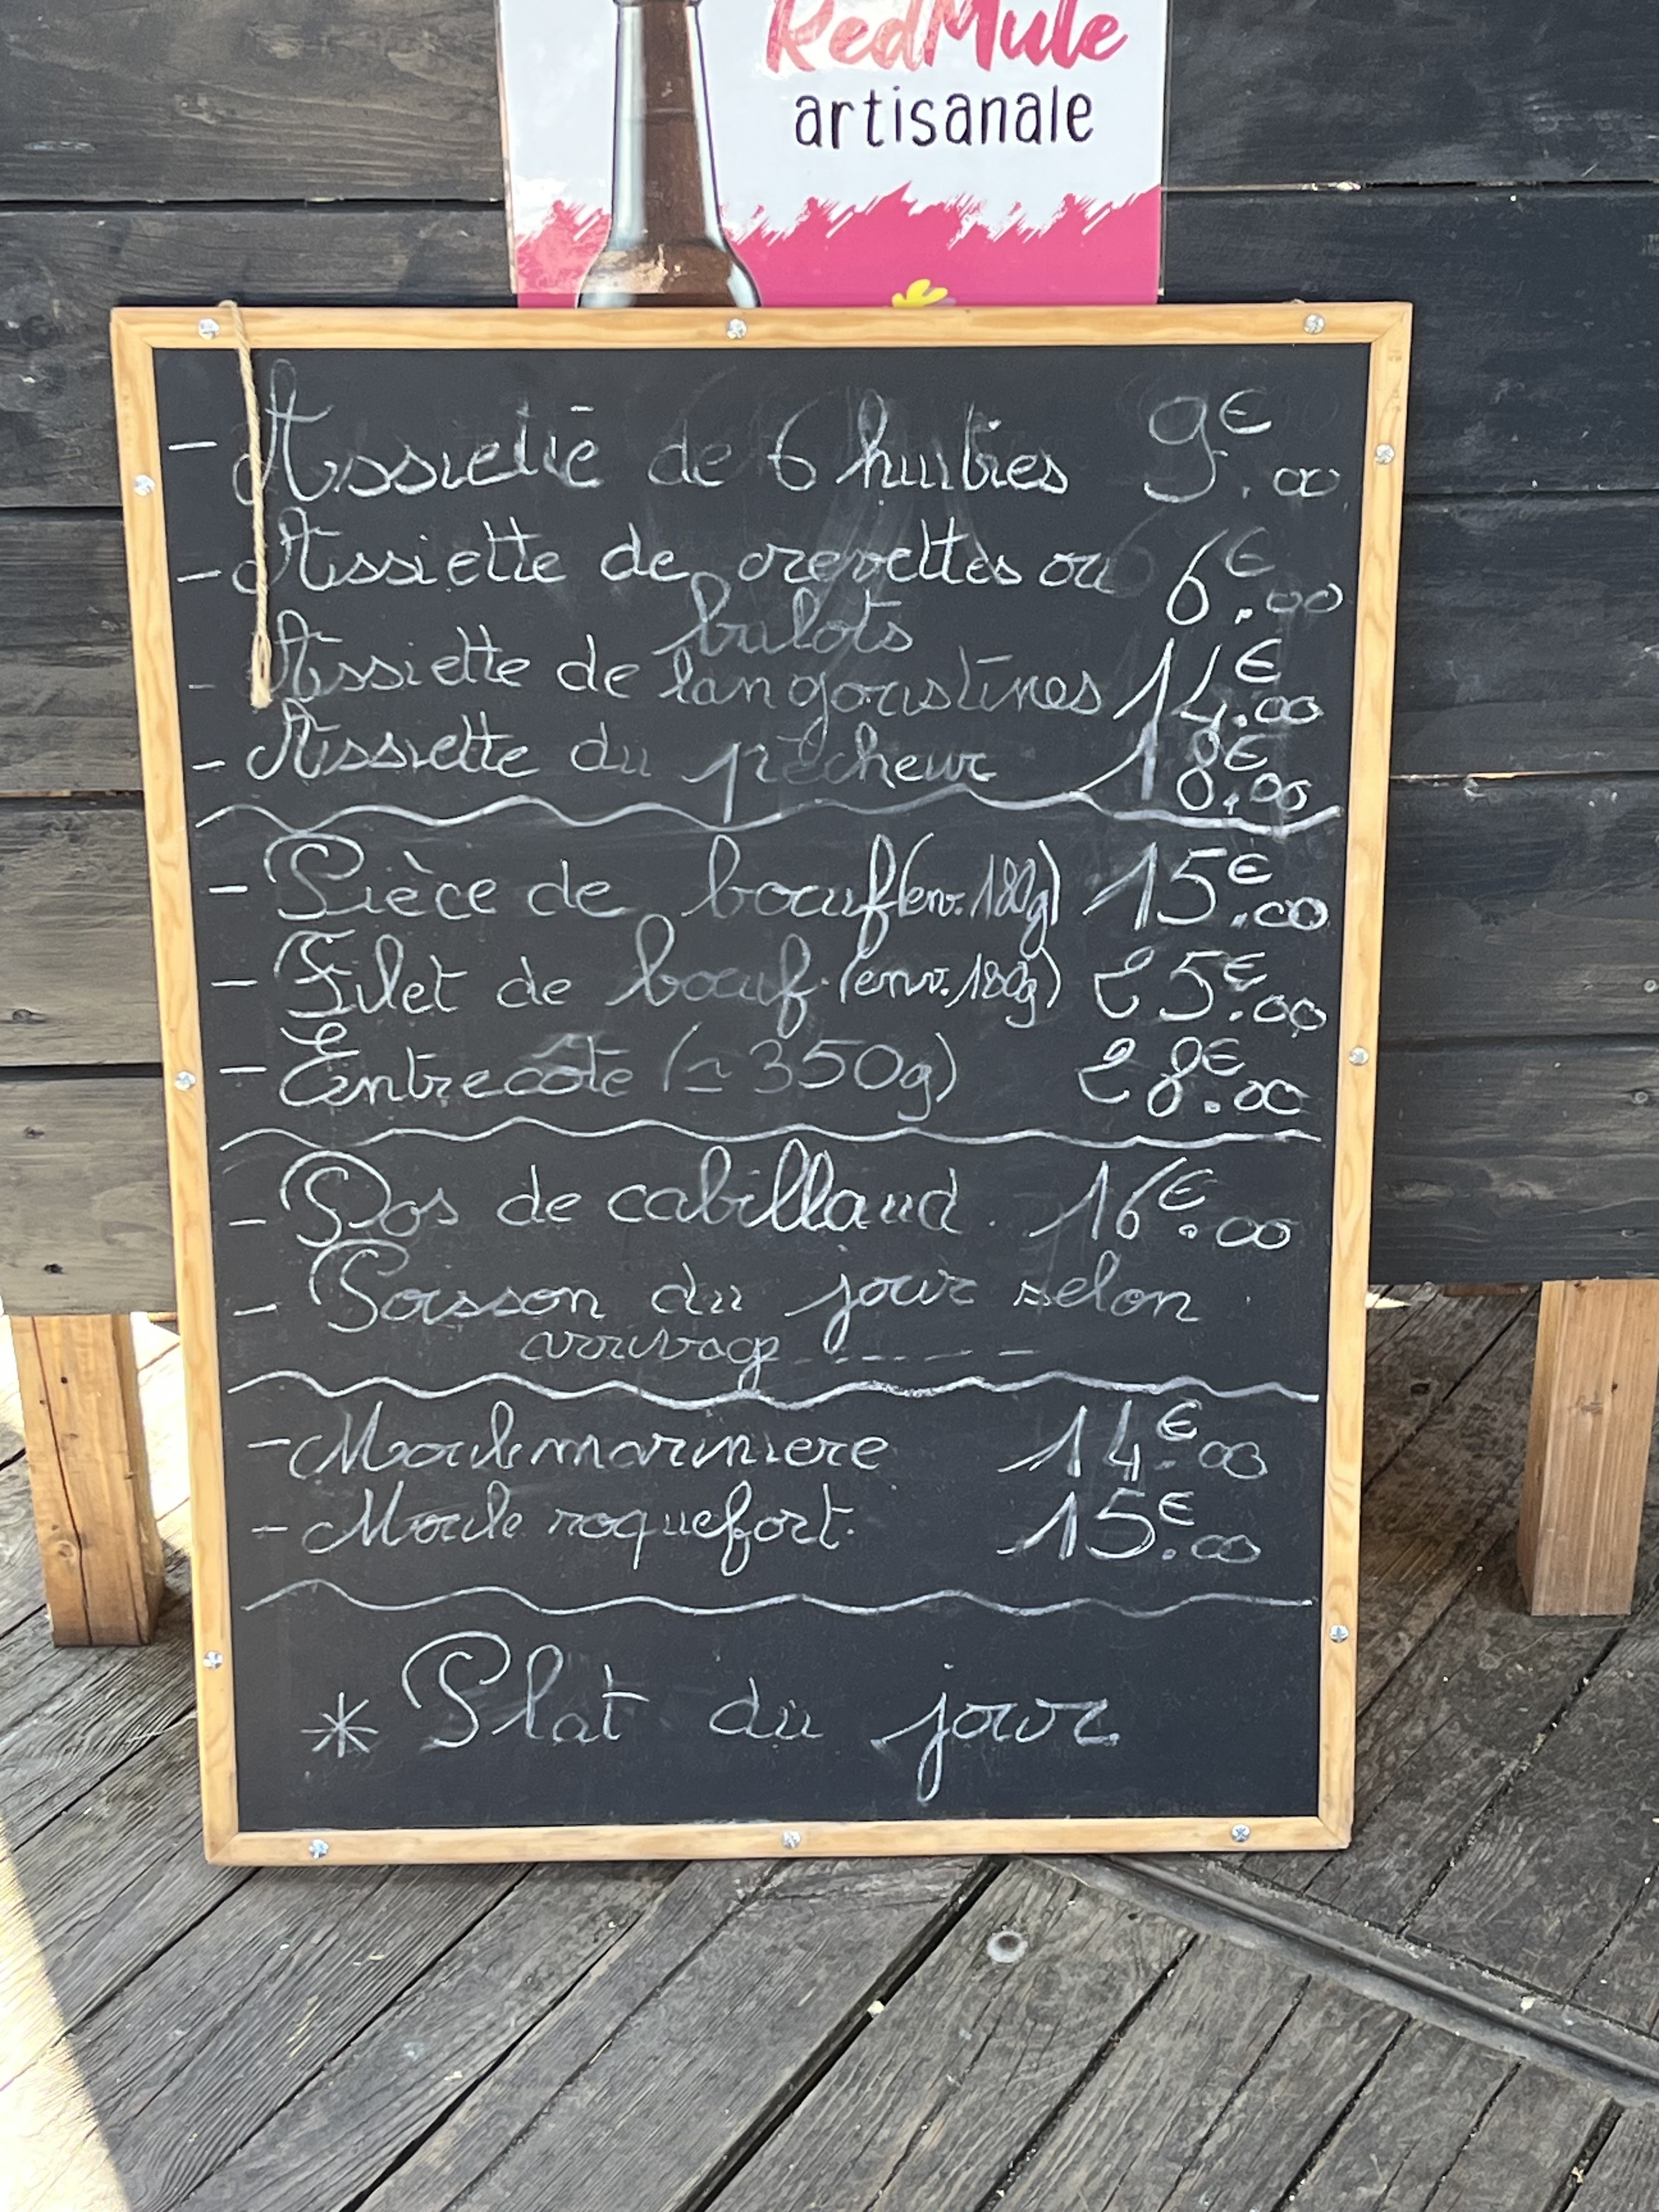 RedMule
artisanale
- Assiette de 6 huitres 9€.00
- Assiette de crevettes ou 6€.00
bulots
- Assiette de langoustines 14€.00
- Assiette du pêcheur 18€.00
- Pièce de bœuf (env. 180g) 15€.00
- Filet de bœuf. (env. 180g) 25€.00
- Entrecôte (≃ 350g) 28€.00
- Dos de cabillaud. 16€.00
- Poisson du jour selon
arrivage - - - - - -
- Moule mariniere 14€.00
- Moule roquefort. 15€.00
* Plat du jour